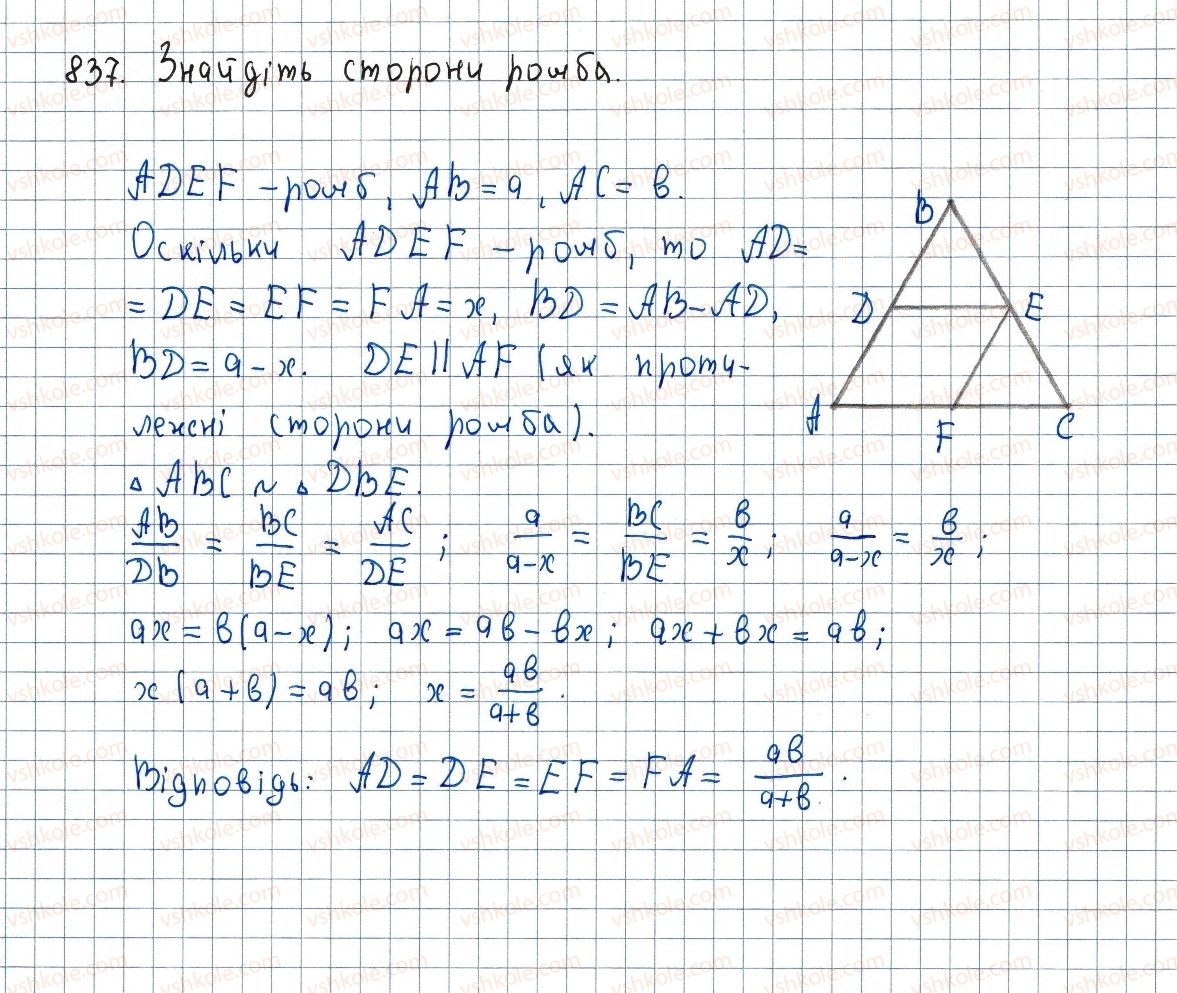 837. Знайдіть сторони ромба.
ADEF – ромб, AB = a, AC = в.
Оскільки ADEF – ромб, то AD=
= DE = EF = FA = x, BD = AB – AD,
BD = a – x. DE || AF (як проти-
лежні сторони ромба).
△ABC ~ △DBE.
AB/DB = BC/BE = AC/DE; a/(a–x) = BC/BE = в/x; a/(a–x) = в/x;
ax = в(a–x); ax = aв – вx; ax + вx = aв;
x(a+в) = aв; x = aв/(a+в).
Відповідь: AD = DE = EF = FA = aв/(a+в).
B
D
E
A
F
C
vshkole.com